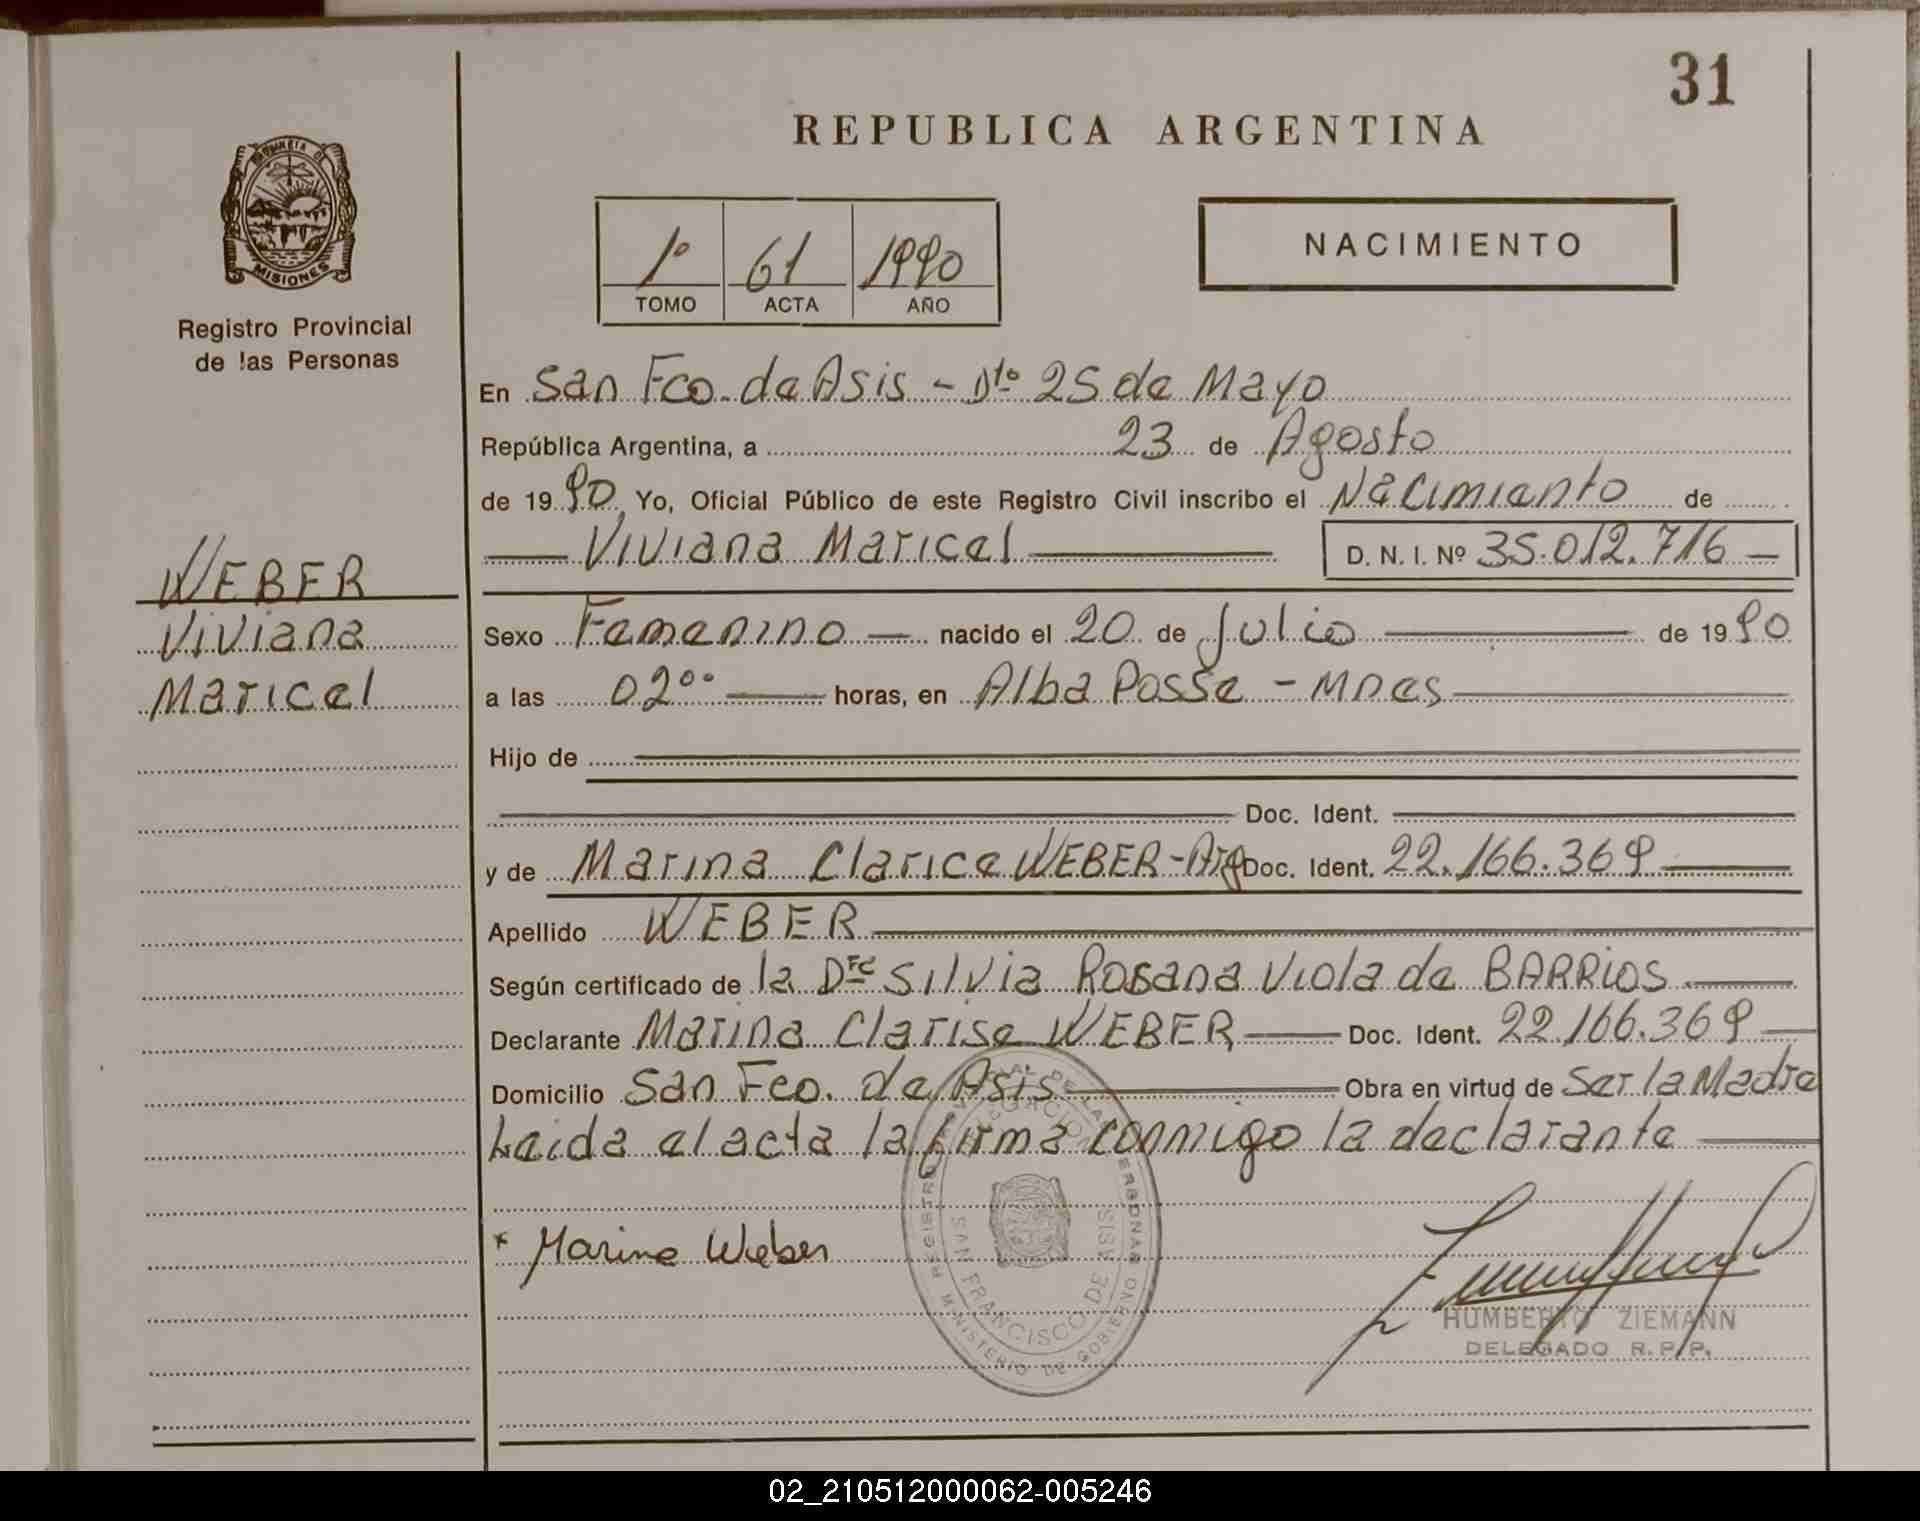 31
REPUBLICA ARGENTINA
PROVINCIA DE
MISIONES
Registro Provincial
de las Personas
1º 61 1990
TOMO ACTA AÑO
NACIMIENTO
En San Fco. de Asis - Dto 25 de Mayo
República Argentina, a 23 de Agosto
de 1990 Yo, Oficial Público de este Registro Civil inscribo el Nacimiento de
Viviana Maricel D. N. I. Nº 35.012.716
WEBER
Viviana
Maricel
Sexo Femenino nacido el 20 de Julio de 1990
a las 02°° horas, en Alba Posse - Mnes
Hijo de
Doc. Ident.
y de Marina Clarice WEBER - Arg Doc. Ident. 22.166.369
Apellido WEBER
Según certificado de la Dra Silvia Rosana Viola de BARRIOS
Declarante Marina Clarise WEBER Doc. Ident. 22.166.369
Domicilio San Fco. de Asis Obra en virtud de Ser la Madre
Leida el acta la firma conmigo la declarante
* Marina Weber
SAN FRANCISCO DE ASIS
MINISTERIO DE GOBIERNO
HUMBERTO ZIEMANN
DELEGADO R.P.P.
02_210512000062-005246